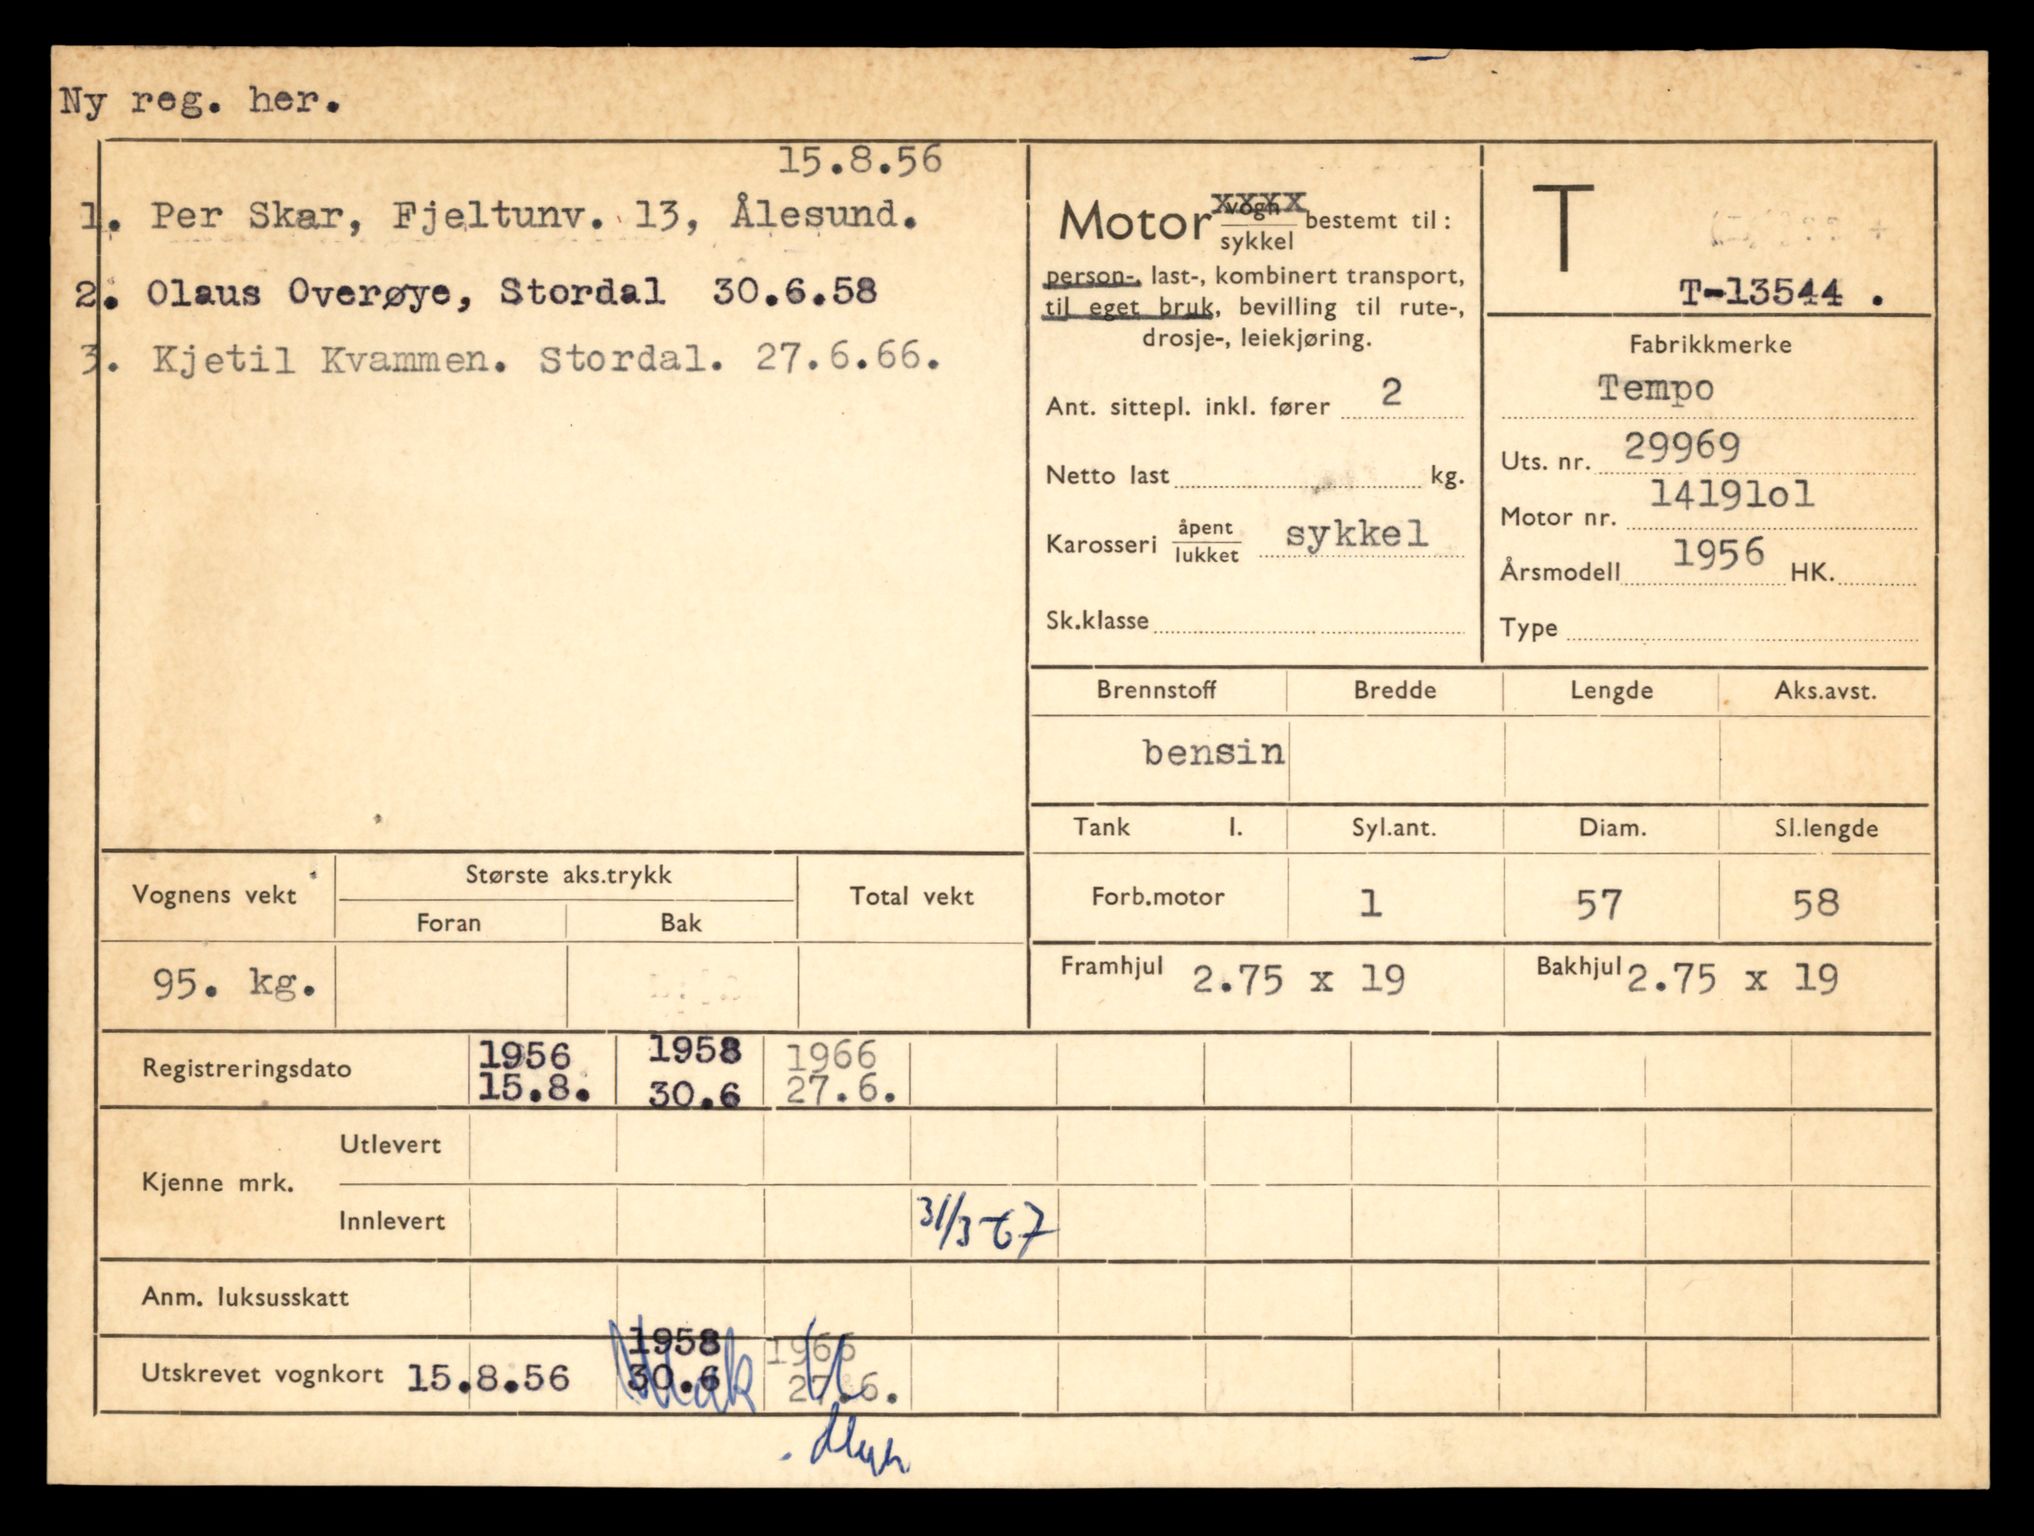 Ny reg. her.
15.8.56
1. Per Skar, Fjeltunv. 13, Ålesund.
2. Olaus Overøye, Stordal 30.6.58
3. Kjetil Kvammen. Stordal. 27.6.66.
Motor vogn xxxx sykkel bestemt til:
person-, last-, kombinert transport,
til eget bruk, bevilling til rute-,
drosje-, leiekjøring.
Ant. sittepl. inkl. fører 2
Netto last kg.
Karosseri åpent lukket sykkel
Sk.klasse
T
T-13544 .
Fabrikkmerke
Tempo
Uts. nr. 29969
Motor nr. 14191o1
Årsmodell 1956 HK.
Type
Brennstoff Bredde Lengde Aks.avst.
bensin
Tank l. Syl.ant. Diam. Sl.lengde
Forb.motor 1 57 58
Framhjul 2.75 x 19 Bakhjul 2.75 x 19
Vognens vekt Største aks.trykk Total vekt
Foran Bak
95. kg.
Registreringsdato 1956 1958 1966
15.8. 30.6 27.6.
Kjenne mrk. Utlevert
Innlevert 31/3-67
Anm. luksusskatt
1958 1966
Utskrevet vognkort 15.8.56 30.6 27.6.